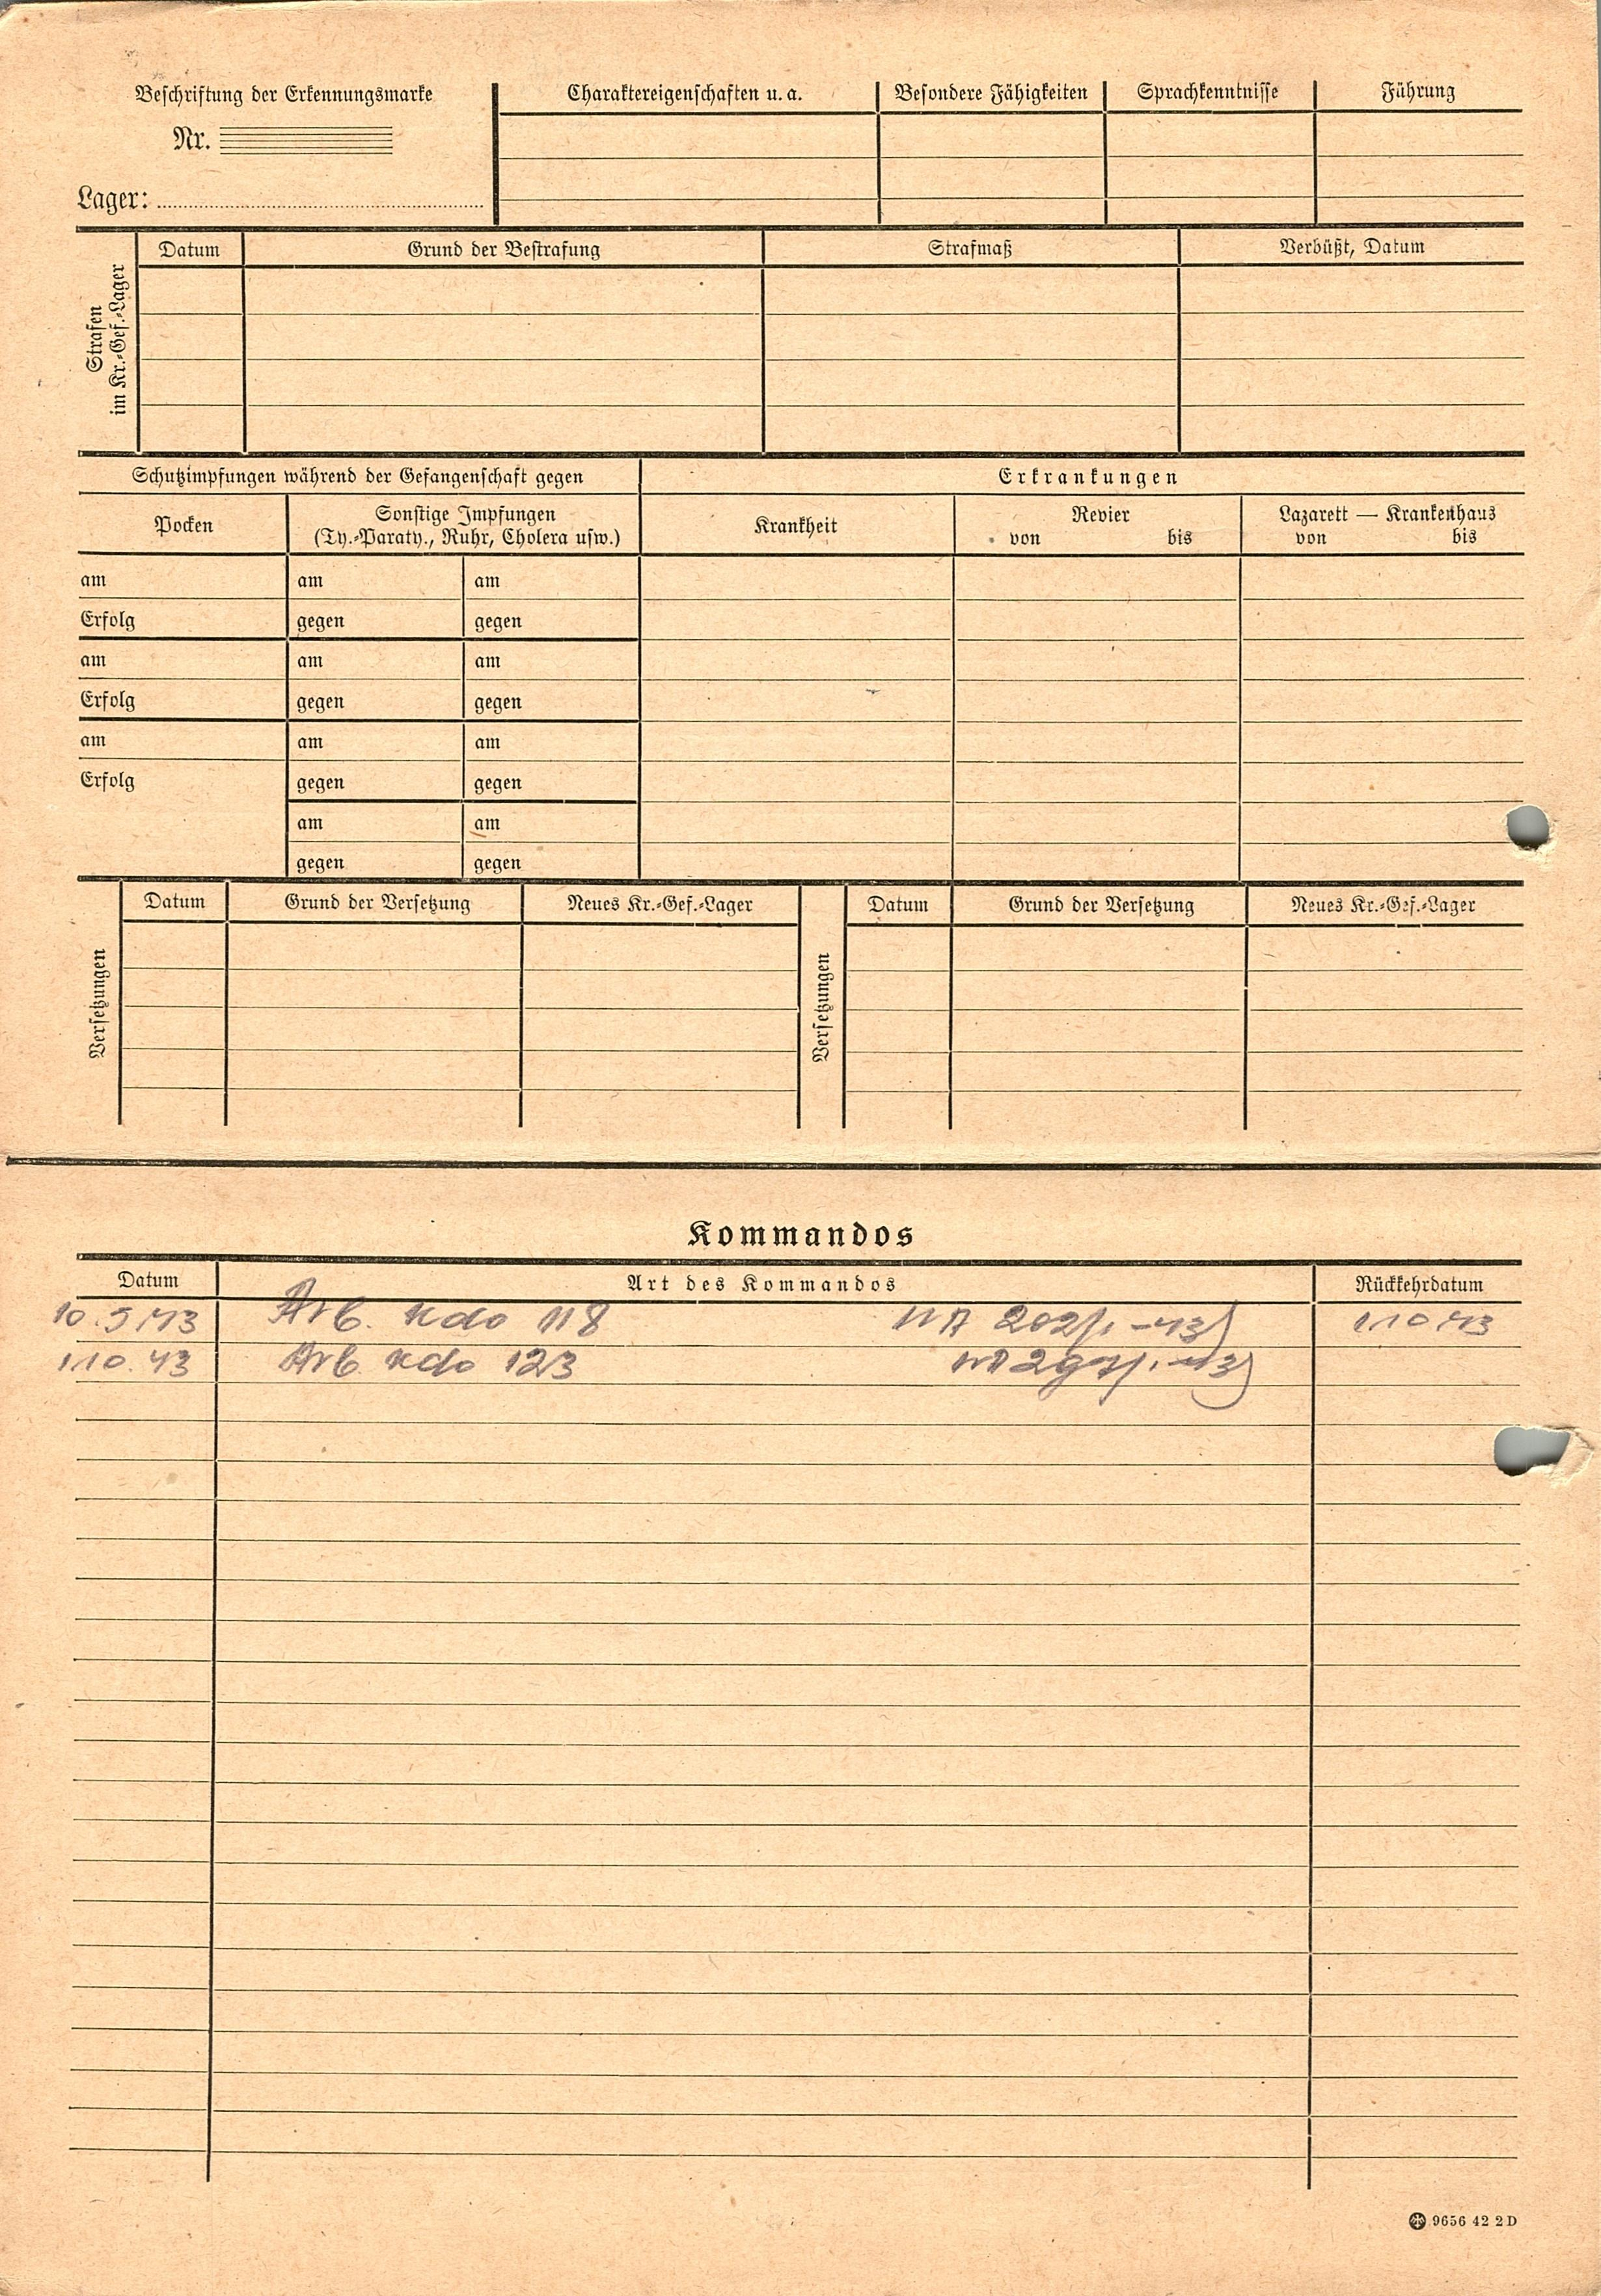 Beschriftung der Erkennungsmarke
Nr.
Lager:
Charaktereigenschaften u. a.
Besondere Fähigkeiten
Sprachkenntnisse
Führung
Strafen
im Kr.-Gef.-Lager
Datum
Grund der Bestrafung
Strafmaß
Verbüßt, Datum
Schutzimpfungen während der Gefangenschaft gegen
Erkrankungen
Pocken
Sonstige Impfungen
(Ty.-Paraty., Ruhr, Cholera usw.)
Krankheit
Revier
von bis
Lazarett — Krankenhaus
von bis
am am am
Erfolg gegen gegen
am am am
Erfolg gegen gegen
am am am
Erfolg gegen gegen
am am
gegen gegen
Versetzungen
Datum Grund der Versetzung Neues Kr.-Gef.-Lager
Versetzungen
Datum Grund der Versetzung Neues Kr.-Gef.-Lager
Kommandos
Datum Art des Kommandos Rückkehrdatum
10.5.43 Arb. Kdo 118 1.10.43
1.10.43 Arb. Kdo 123
9656 42 2 D